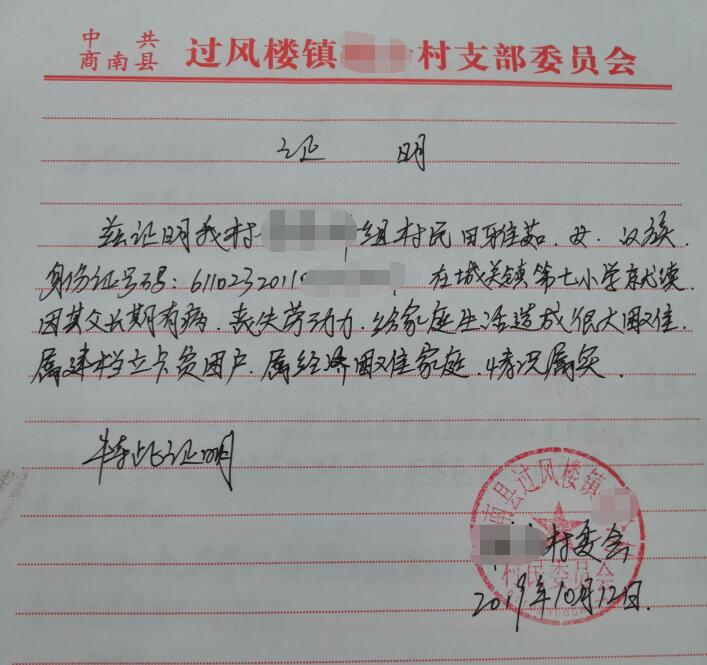 中共
商南县 过风楼镇 村支部委员会
证 明
兹证明我村 组村民田雅茹，女，汉族，
身份证号码：611023201 ，在城关镇第七小学就读，
因其父长期有病，丧失劳动力，给家庭生活造成很大困难，
属建档立卡贫困户，属经济困难家庭，情况属实。
特此证明
南县过风楼镇
村委会
村民委员会
2019年10月12日.